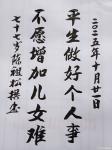 二〇二五年十月廿一日
平生做好个人事
不愿增加儿女难
七十七岁陈祖松撰书